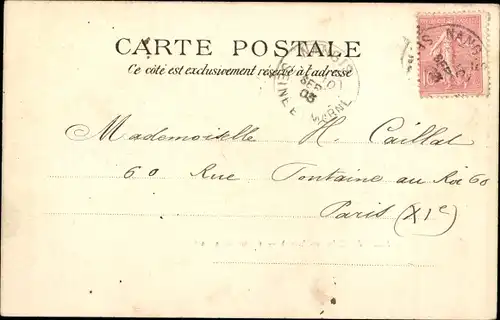 CARTE POSTALE
Ce côté est exclusivement réservé à l'adresse
NANGIS
SEP
03
SEINE E MARNE
Mademoiselle H. Caillat
60 Rue Fontaine au Roi 60
Paris (XIe)